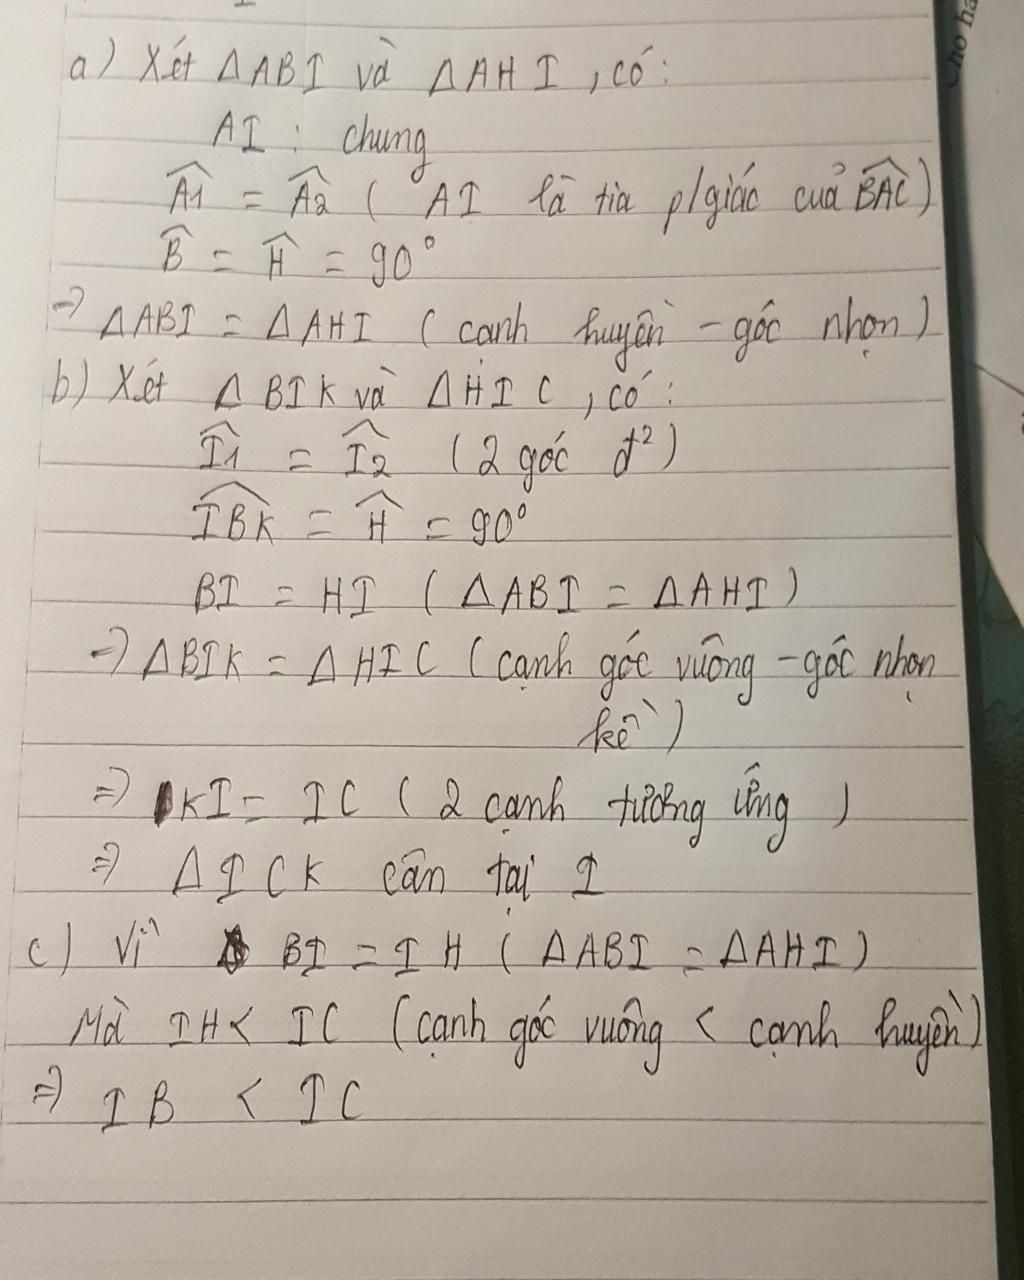 a) Xét ΔABI và ΔAHI, có:
AI : chung
Â1 = Â2 ( AI là tia p/giác của B̂AC)
B̂ = Ĥ = 90°
=> ΔABI = ΔAHI ( cạnh huyền - góc nhọn)
b) Xét ΔBIK và ΔHIC, có:
Î1 = Î2 (2 góc đ²)
ÎBK = Ĥ = 90°
BI = HI ( ΔABI = ΔAHI)
=> ΔBIK = ΔHIC (cạnh góc vuông - góc nhọn
kề)
=> KI = IC ( 2 cạnh tương ứng )
=> ΔICK cân tại I
c) Vì BI = IH ( ΔABI = ΔAHI)
Mà IH < IC (cạnh góc vuông < cạnh huyền)
=> IB < IC